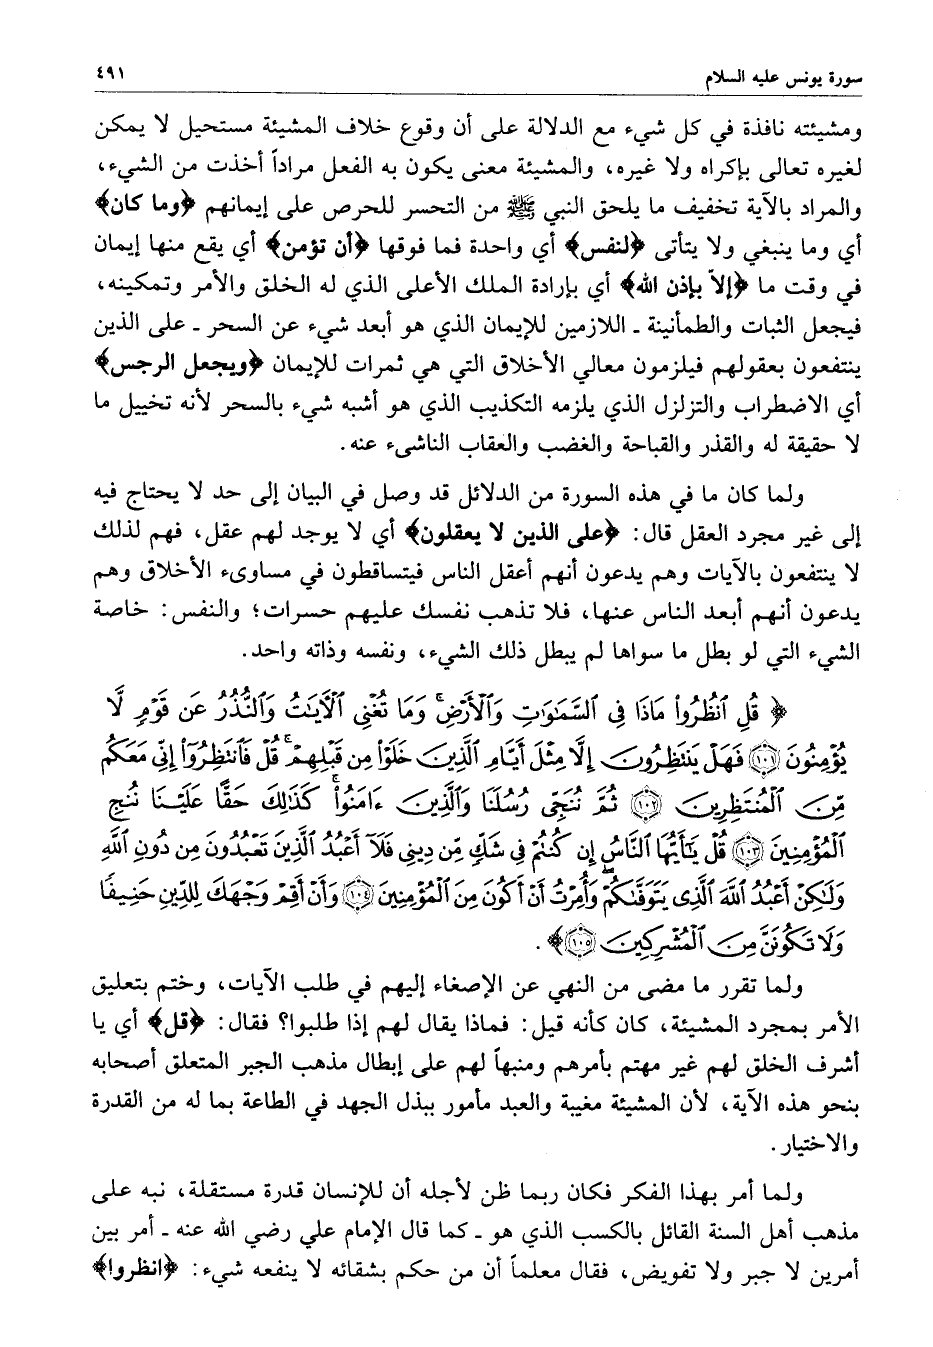 سورة يونس عليه السلام ٤٩١
ومشيئته نافذة في كل شيء مع الدلالة على أن وقوع خلاف المشيئة مستحيل لا يمكن
لغيره تعالى بإكراه ولا غيره، والمشيئة معنى يكون به الفعل مراداً أخذت من الشيء،
والمراد بالآية تخفيف ما يلحق النبي ﷺ من التحسر للحرص على إيمانهم ﴿وما كان﴾
أي وما ينبغي ولا يتأتى ﴿لنفس﴾ أي واحدة فما فوقها ﴿أن تؤمن﴾ أي يقع منها إيمان
في وقت ما ﴿إلا بإذن الله﴾ أي بإرادة الملك الأعلى الذي له الخلق والأمر وتمكينه،
فيجعل الثبات والطمأنينة ـ اللازمين للإيمان الذي هو أبعد شيء عن السحر ـ على الذين
ينتفعون بعقولهم فيلزمون معالي الأخلاق التي هي ثمرات للإيمان ﴿ويجعل الرجس﴾
أي الاضطراب والتزلزل الذي يلزمه التكذيب الذي هو أشبه شيء بالسحر لأنه تخييل ما
لا حقيقة له والقذر والقباحة والغضب والعقاب الناشىء عنه.
ولما كان ما في هذه السورة من الدلائل قد وصل في البيان إلى حد لا يحتاج فيه
إلى غير مجرد العقل قال: ﴿على الذين لا يعقلون﴾ أي لا يوجد لهم عقل، فهم لذلك
لا ينتفعون بالآيات وهم يدعون أنهم أعقل الناس فيتساقطون في مساوىء الأخلاق وهم
يدعون أنهم أبعد الناس عنها، فلا تذهب نفسك عليهم حسرات؛ والنفس: خاصة
الشيء التي لو بطل ما سواها لم يبطل ذلك الشيء، ونفسه وذاته واحد.
﴿قُلِ ٱنظُرُوا۟ مَاذَا فِى ٱلسَّمَٰوَٰتِ وَٱلْأَرْضِ ۚ وَمَا تُغْنِى ٱلْءَايَٰتُ وَٱلنُّذُرُ عَن قَوْمٍ لَّا
يُؤْمِنُونَ ١٠١ فَهَلْ يَنتَظِرُونَ إِلَّا مِثْلَ أَيَّامِ ٱلَّذِينَ خَلَوْا۟ مِن قَبْلِهِمْ ۚ قُلْ فَٱنتَظِرُوٓا۟ إِنِّى مَعَكُم
مِّنَ ٱلْمُنتَظِرِينَ ١٠٢ ثُمَّ نُنَجِّى رُسُلَنَا وَٱلَّذِينَ ءَامَنُوا۟ ۚ كَذَٰلِكَ حَقًّا عَلَيْنَا نُنجِ
ٱلْمُؤْمِنِينَ ١٠٣ قُلْ يَٰٓأَيُّهَا ٱلنَّاسُ إِن كُنتُمْ فِى شَكٍّ مِّن دِينِى فَلَآ أَعْبُدُ ٱلَّذِينَ تَعْبُدُونَ مِن دُونِ ٱللَّهِ
وَلَٰكِنْ أَعْبُدُ ٱللَّهَ ٱلَّذِى يَتَوَفَّىٰكُمْ ۖ وَأُمِرْتُ أَنْ أَكُونَ مِنَ ٱلْمُؤْمِنِينَ ١٠٤ وَأَنْ أَقِمْ وَجْهَكَ لِلدِّينِ حَنِيفًا
وَلَا تَكُونَنَّ مِنَ ٱلْمُشْرِكِينَ ١٠٥﴾.
ولما تقرر ما مضى من النهي عن الإصغاء إليهم في طلب الآيات، وختم بتعليق
الأمر بمجرد المشيئة، كان كأنه قيل: فماذا يقال لهم إذا طلبوا؟ فقال: ﴿قل﴾ أي يا
أشرف الخلق لهم غير مهتم بأمرهم ومنبهاً لهم على إبطال مذهب الجبر المتعلق أصحابه
بنحو هذه الآية، لأن المشيئة مغيبة والعبد مأمور ببذل الجهد في الطاعة بما له من القدرة
والاختيار.
ولما أمر بهذا الفكر فكان ربما ظن لأجله أن للإنسان قدرة مستقلة، نبه على
مذهب أهل السنة القائل بالكسب الذي هو ـ كما قال الإمام علي رضي الله عنه ـ أمر بين
أمرين لا جبر ولا تفويض، فقال معلماً أن من حكم بشقائه لا ينفعه شيء: ﴿انظروا﴾